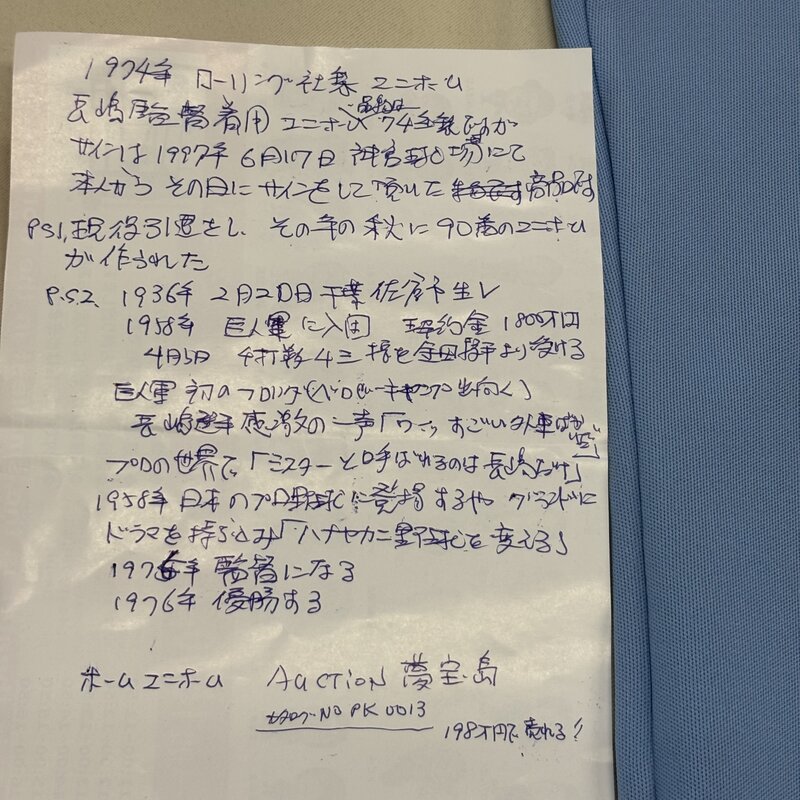 1974年 ローリング社製 ユニホーム
長嶋監督着用 ユニホーム 74年製ですが
サインは1997年 6月17日 神宮球場にて
本人から その日にサインをして頂いた 商品です
P.S1, 現役引退をし、その年の秋に 90番のユニホーム
が作られた
P.S.2 1936年 2月20日 千葉 佐倉市生レ
1958年 巨人軍に入団 契約金 1800万円
4月5日 4打数4三振を金田投手より受ける
巨人軍 初のフロリダ(ベロビーキャンプ 出向く)
長嶋選手 感激の一声「ワーッ すごい外車ばかりだぜ」
プロの世界で「ミスターと呼ばれるのは長嶋だけ」
1958年 日本のプロ野球に登場するや グランドに
ドラマを持ち込み「ハナヤカニ野球を変える」
1975年 監督になる
1976年 優勝する
ホームユニホーム AUCTION 夢宝島
カタログNO PK0013
198万円で売れる!!